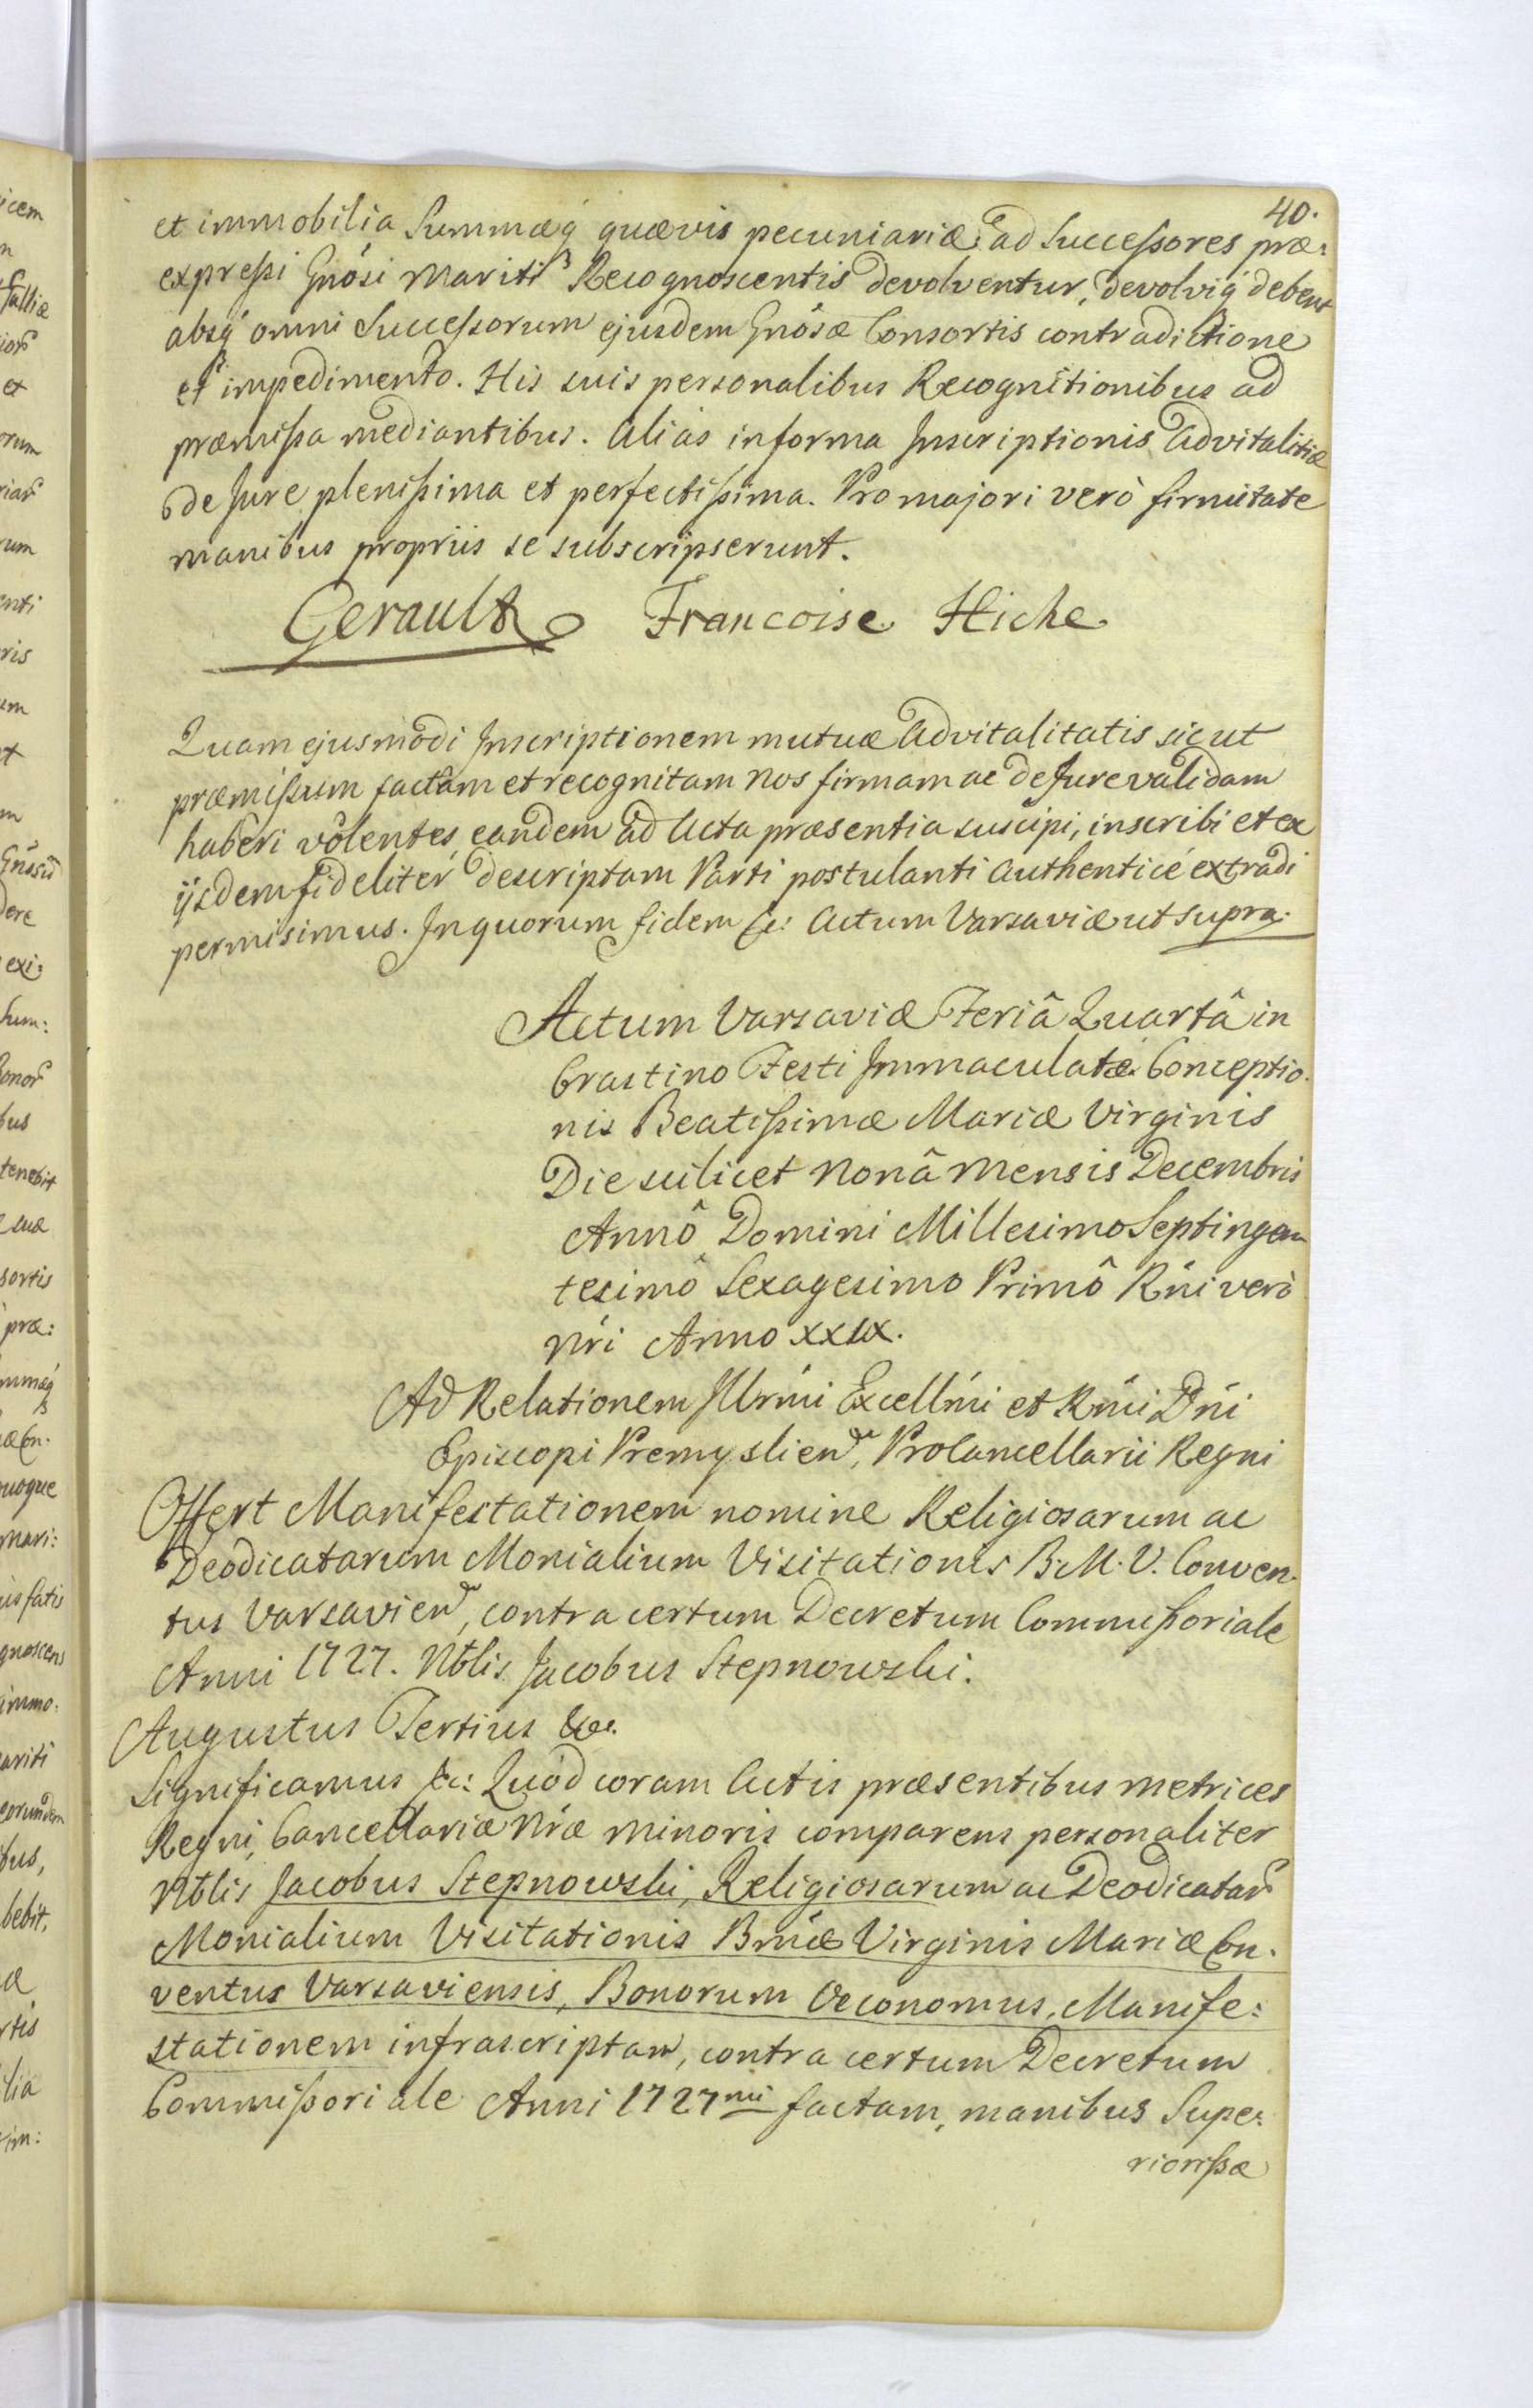 40.
et immobilia Summæq́ quævis pecuniariæ ad Successores præ:
expressi Gnósi Mariti Recognoscentis devolventur, devolviq́ debent
absq́ omni Successorum ejusdem Gnósæ Consortis contradictione
et impedimento. His suis personalibus Recognitionibus ad
præmissa mediantibus. Aliàs in forma Inscriptionis Advitalitiæ
de Jure plenissima et perfectissima. Pro majori verò firmitate
manibus propriis se subscripserunt.
Gerault Francoise Hiche
Quam ejusmodi Inscriptionem mutuæ Advitalitatis sicut
præmissum factam et recognitam Nos firmam ac de Jure validam
haberi volentes, eandem ad Acta præsentia suscipi, inscribi et ex
ijsdem fideliter descriptam Parti postulanti Authenticè extradi
permisimus. In quorum fidem &c: Actum Varsaviæ ut supra.
Actum Varsaviæ Feriâ Quartâ in
Crastino Festi Immaculatæ Conceptio-
nis Beatissimæ Mariæ Virginis
Die scilicet Nonâ Mensis Decembris
Annô Domini Millesimo Septingen
tesimô Sexagesimo Primô Rńi verò
Nŕi Anno XXIX.
Ad Relationem Illrḿi Excellḿi et Rḿi Dńi
Episcopi Premyslien, ProCancellarii Regni
Offert Manifestationem nomine Religiosarum ac
Deodicatarum Monialium Visitationis B.M.V. Conven-
tus Varsavien, contra certum Decretum Commissoriale
Anni 1727. Nblis Jacobus Stepnowski.
Augustus Tertius &c.
Significamus &c: Quòd coram Actis præsentibus Metrices
Regni, Cancellariæ Nŕæ Minoris comparens personaliter
Nblis Jacobus Stepnowski, Religiosarum ac Deodicatar
Monialium Visitationis Bmæ Virginis Mariæ Con-
ventus Varsaviensis, Bonorum Oeconomus, Manife:
stationem infrascriptam, contra certum Decretum
Commissoriale Anni 1727mi factam, manibus Supe:
riorissæ